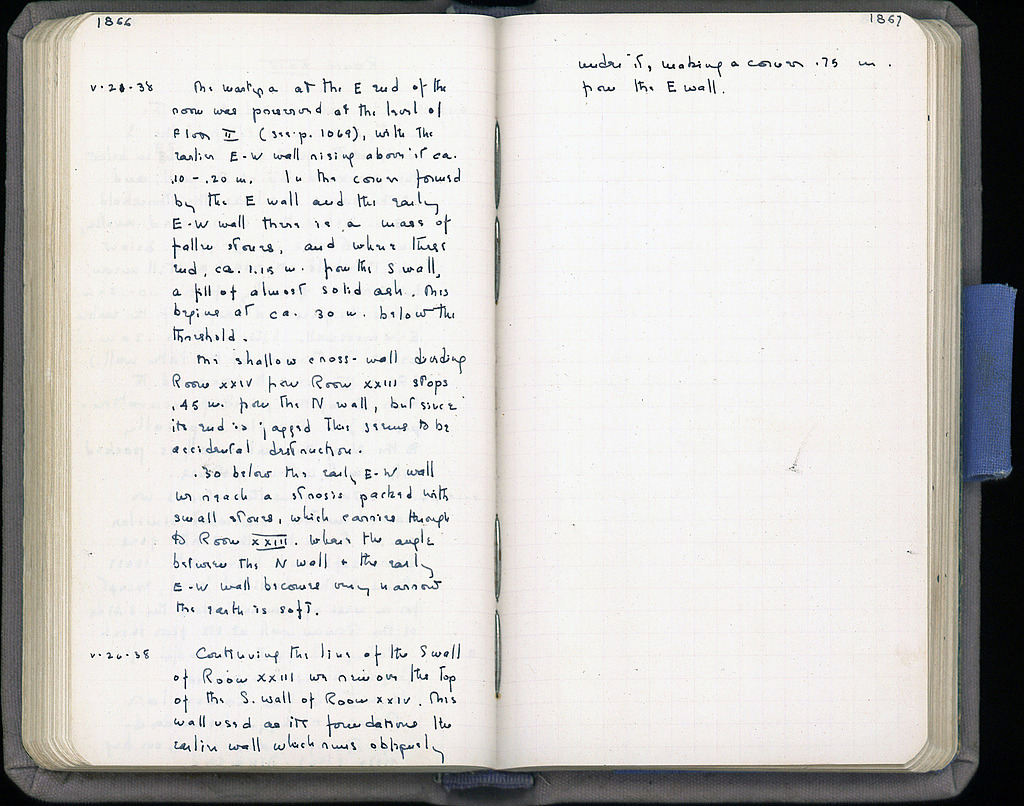 1866
V·23·38 The martyra at the E end of the
room was preserved at the level of
Floor II (see p. 1069), with the
earlier E-W wall rising above it ca.
.10 - .20 m. In the corner formed
by the E wall and the early
E-W wall there is a mass of
fallen stones, and where these
end, ca. 1.15 m. from the S wall,
a fill of almost solid ash. This
begins at ca. 30 m. below the
threshold.
The shallow cross-wall dividing
Room XXIV from Room XXIII stops
.45 m. from the N wall, but since
its end is jagged this seems to be
accidental destruction.
.30 below the early E-W wall
we reach a strosis packed with
small stones, which carries through
to Room XXIII. Where the angle
between the N wall + the early
E-W wall becomes very narrow
the earth is soft.
V·26·38 Continuing the line of the S wall
of Room XXIII we remove the top
of the S. wall of Room XXIV. This
wall used as its foundations the
earlier wall which runs obliquely
1867
under it, making a corner .75 m.
from the E wall.